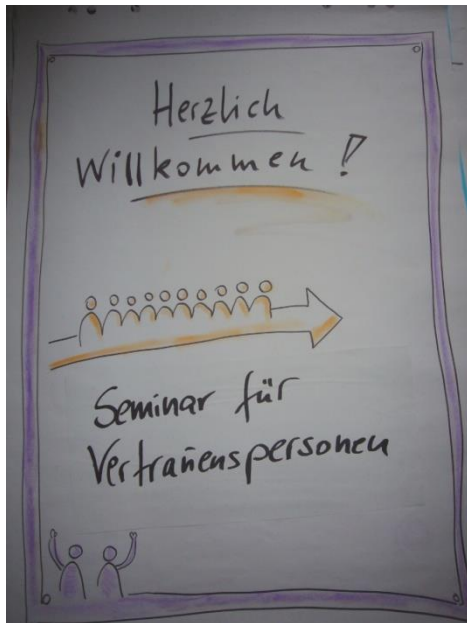 Herzlich
Willkommen!
Seminar für
Vertrauenspersonen